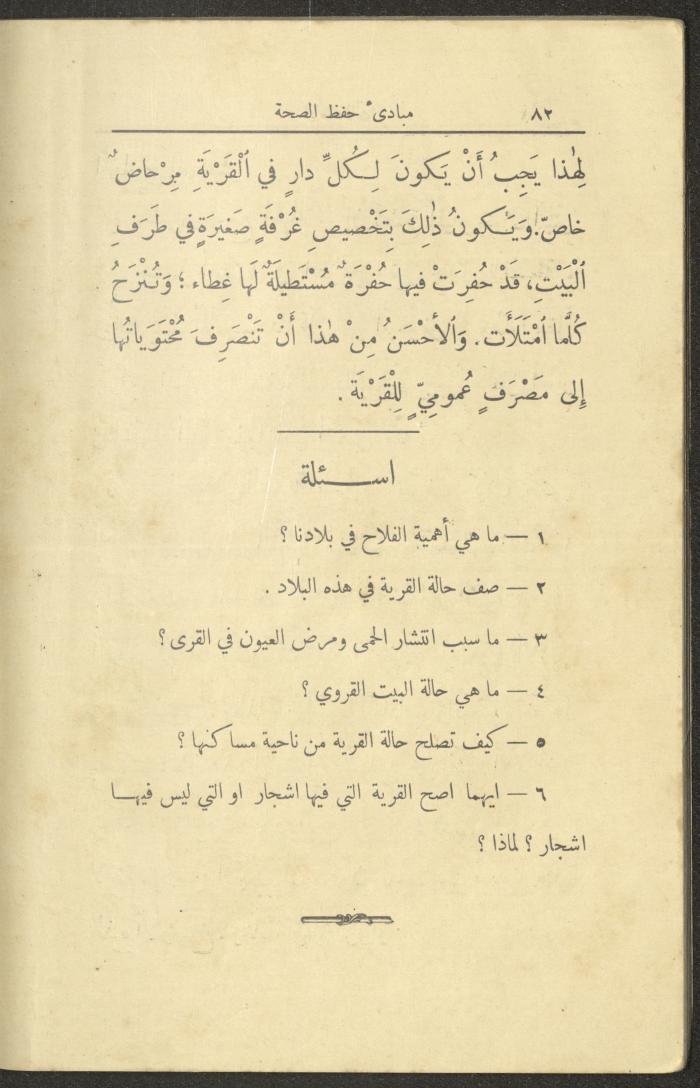 ٨٢ مبادىء حفظ الصحة
لِهٰذا يَجِبُ أَنْ يَكونَ لِكُلِّ دارٍ في ٱلْقَرْيَةِ مِرْحاضٌ
خاصّ. وَيَكونُ ذٰلِكَ بِتَخْصيصِ غُرْفَةٍ صَغيرَةٍ في طَرَفِ
ٱلْبَيْتِ، قَدْ حُفِرَتْ فيها حُفْرَةٌ مُسْتَطيلَةٌ لَها غِطاء ؛ وَتُنْزَحُ
كُلَّما ٱمْتَلَأَت. وَٱلأَحْسَنُ مِنْ هٰذا أَنْ تَنْصَرِفَ مُحْتَوَياتُها
إِلى مَصْرَفٍ عُمومِيٍّ لِلْقَرْيَة .
اسـئلة
١ — ما هي أهمية الفلاح في بلادنا ؟
٢ — صف حالة القرية في هذه البلاد .
٣ — ما سبب انتشار الحمى ومرض العيون في القرى ؟
٤ — ما هي حالة البيت القروي ؟
٥ — كيف تصلح حالة القرية من ناحية مساكنها ؟
٦ — ايهما اصح القرية التي فيها اشجار او التي ليس فيهـا
اشجار ؟ لماذا ؟